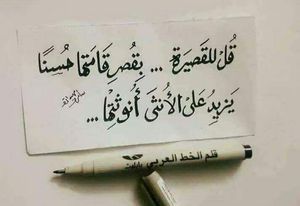 قُل للقَصيرَة ... بِقُصرِ قَامَتها حُسنًا
يَزيدُ عَلى الأُنثى أُنوثتها ...
قلم الخط العربي